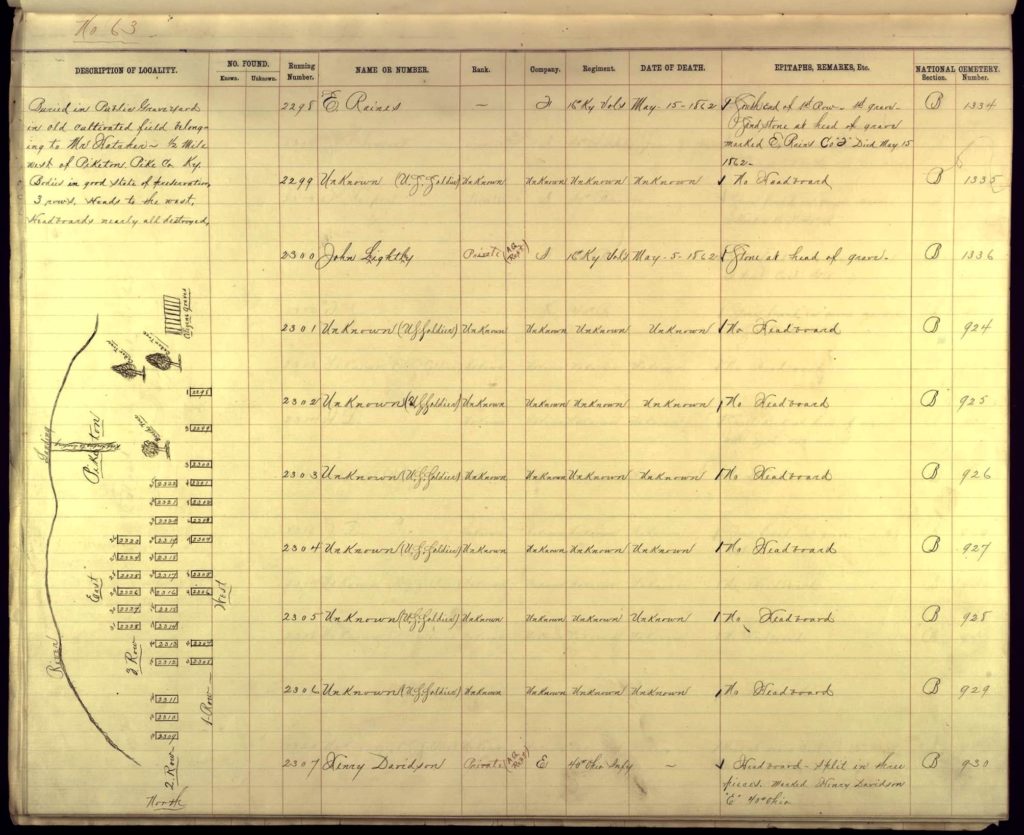 No 63
DESCRIPTION OF LOCALITY. NO. FOUND. Running Number. NAME OR NUMBER. Rank. Company. Regiment. DATE OF DEATH. EPITAPHS, REMARKS, Etc. NATIONAL CEMETERY.
Known. Unknown. Section. Number.
Buried in Public Graveyard
in old cultivated field belong-
ing to Mr ½ Mile
west of Piketon Pike Co Ky.
Bodies in good state of preservation
3 rows. Heads to the west,
Headboards nearly all destroyed,
2298 E Raines – 16 Ky Vols May-15-1862 South end of 1st Row- 1st grave-
Sandstone at head of grave
marked E, Rains Co Died May 15
1862-
2299 Unknown (U.S. Soldier) Unknown Unknown Unknown Unknown No Headboard B 1335
B 1334
2300 John Lightly Private 16 Ky Vols May-5-1862 Stone at head of grave- B 1336
2301 Unknown (U.S. Soldier) Unknown Unknown Unknown Unknown No Headboard B 924
2302 Unknown (U.S. Soldier) Unknown Unknown Unknown Unknown No Headboard B 925
2303 Unknown (U.S. Soldier) Unknown Unknown Unknown Unknown No Headboard B 926
2304 Unknown (U.S. Soldier) Unknown Unknown Unknown Unknown No Headboard B 927
2305 Unknown (U.S. Soldier) Unknown Unknown Unknown Unknown No Headboard B 928
2306 Unknown (U.S. Soldier) Unknown Unknown Unknown Unknown No Headboard B 929
2307 Henry Davidson Private E 40 Ohio Infy – Headboard- split in three B 930
pieces. Marked Henry Davidson
"E" 40 Ohio
Landing
Piketon
East
West
River
3 Row
1-Row-
2. Row-
North